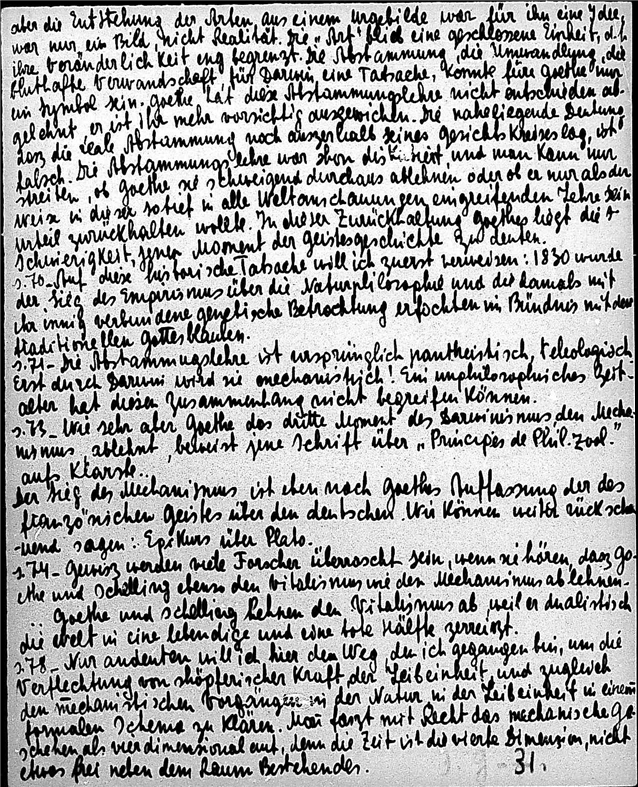 aber die Entstehung der Arten aus einem Urgebilde war für ihn eine Idee,
war nur ein Bild, nicht Realität. Die „Art" blieb eine geschlossene Einheit, d.h.
ihre Veränderlichkeit eng begrenzt. Die Abstammung, die Umwandlung, die
bluthafte Verwandschaft, für Darwin eine Tatsache, konnte fürs Goethe nur
ein Symbol sein. Goethe hat diese Abstammungslehre nicht entschieden ab-
gelehnt, er ist ihr mehr vorsichtig ausgewichen. Die naheliegende Deutung,
dasz die reale Abstammung noch auszerhalb seines Gesichtskreises lag, ist
falsch. Die Abstammungslehre war shon diskutiert, und man kann nur
streiten, ob Goethe sie schweigend durchaus ablehnen oder ob er nur als der
Weise in dieser so tief in alle Weltanschauungen eingreifenden Lehre sein
Urteil zurückhalten wollte. In dieser Zurückhaltung Goethes liegt die
Schwierigkeit, jenen Moment der Geistesgeschichte zu deuten.
s.70_ Auf diese historische Tatsache will ich zuerst verweisen: 1830 wurde
der Sieg des Empirismus über die Naturphilosophie und die damals mit
ihr innig verbundene genetische Betrachtung erfochten im Bündnis mit dem
traditionellen Gottesglauben.
s.71_ Die Abstammungslehre ist ursprünglich pantheistisch, teleologisch.
Erst durch Darwin wird sie mechanistisch! Ein unphilosophisches Zeit-
alter hat diesen Zusammenhang nicht begreifen können.
s.73_ Wie sehr aber Goethe das dritte Moment des Darwinismus den Mecha-
nismus, ablehnt, beweist jene Schrift über „Principes de Phil. Zool."
aufs Klarste..
Der Sieg des Mechanismus ist eben nach Goethes Auffassung der des
französischen Geistes über den deutschen. Wir können weiter rückscha-
-uend sagen: Epikurs über Plato.
s.74_ Gewisz werden viele Forscher überrascht sein, wenn sie hören, dasz Go-
ethe und Schelling ebenso den Vitalismus wie den Mechanismus ablehnen.
Goethe und Schelling lehnen den Vitalismus ab, weil er dualistisch
die Welt in eine lebendige und eine tote Hälfte zerreiszt.
s.78_ Nur andeuten will ich hier den Weg, den ich gegangen bin, um die
Verflechtung von shöpferischer Kraft der Leibeinheit, und zugleich
den mechanistischen Vorgängen in der Natur in der Leibeinheit in einem
formalen Schema zu klären. Man faszt mit Recht das mechanische Ge-
schehen als vierdimensional auf, denn die Zeit ist die vierte Dimension, nicht
etwas frei neben dem Raum Bestehendes.
31.